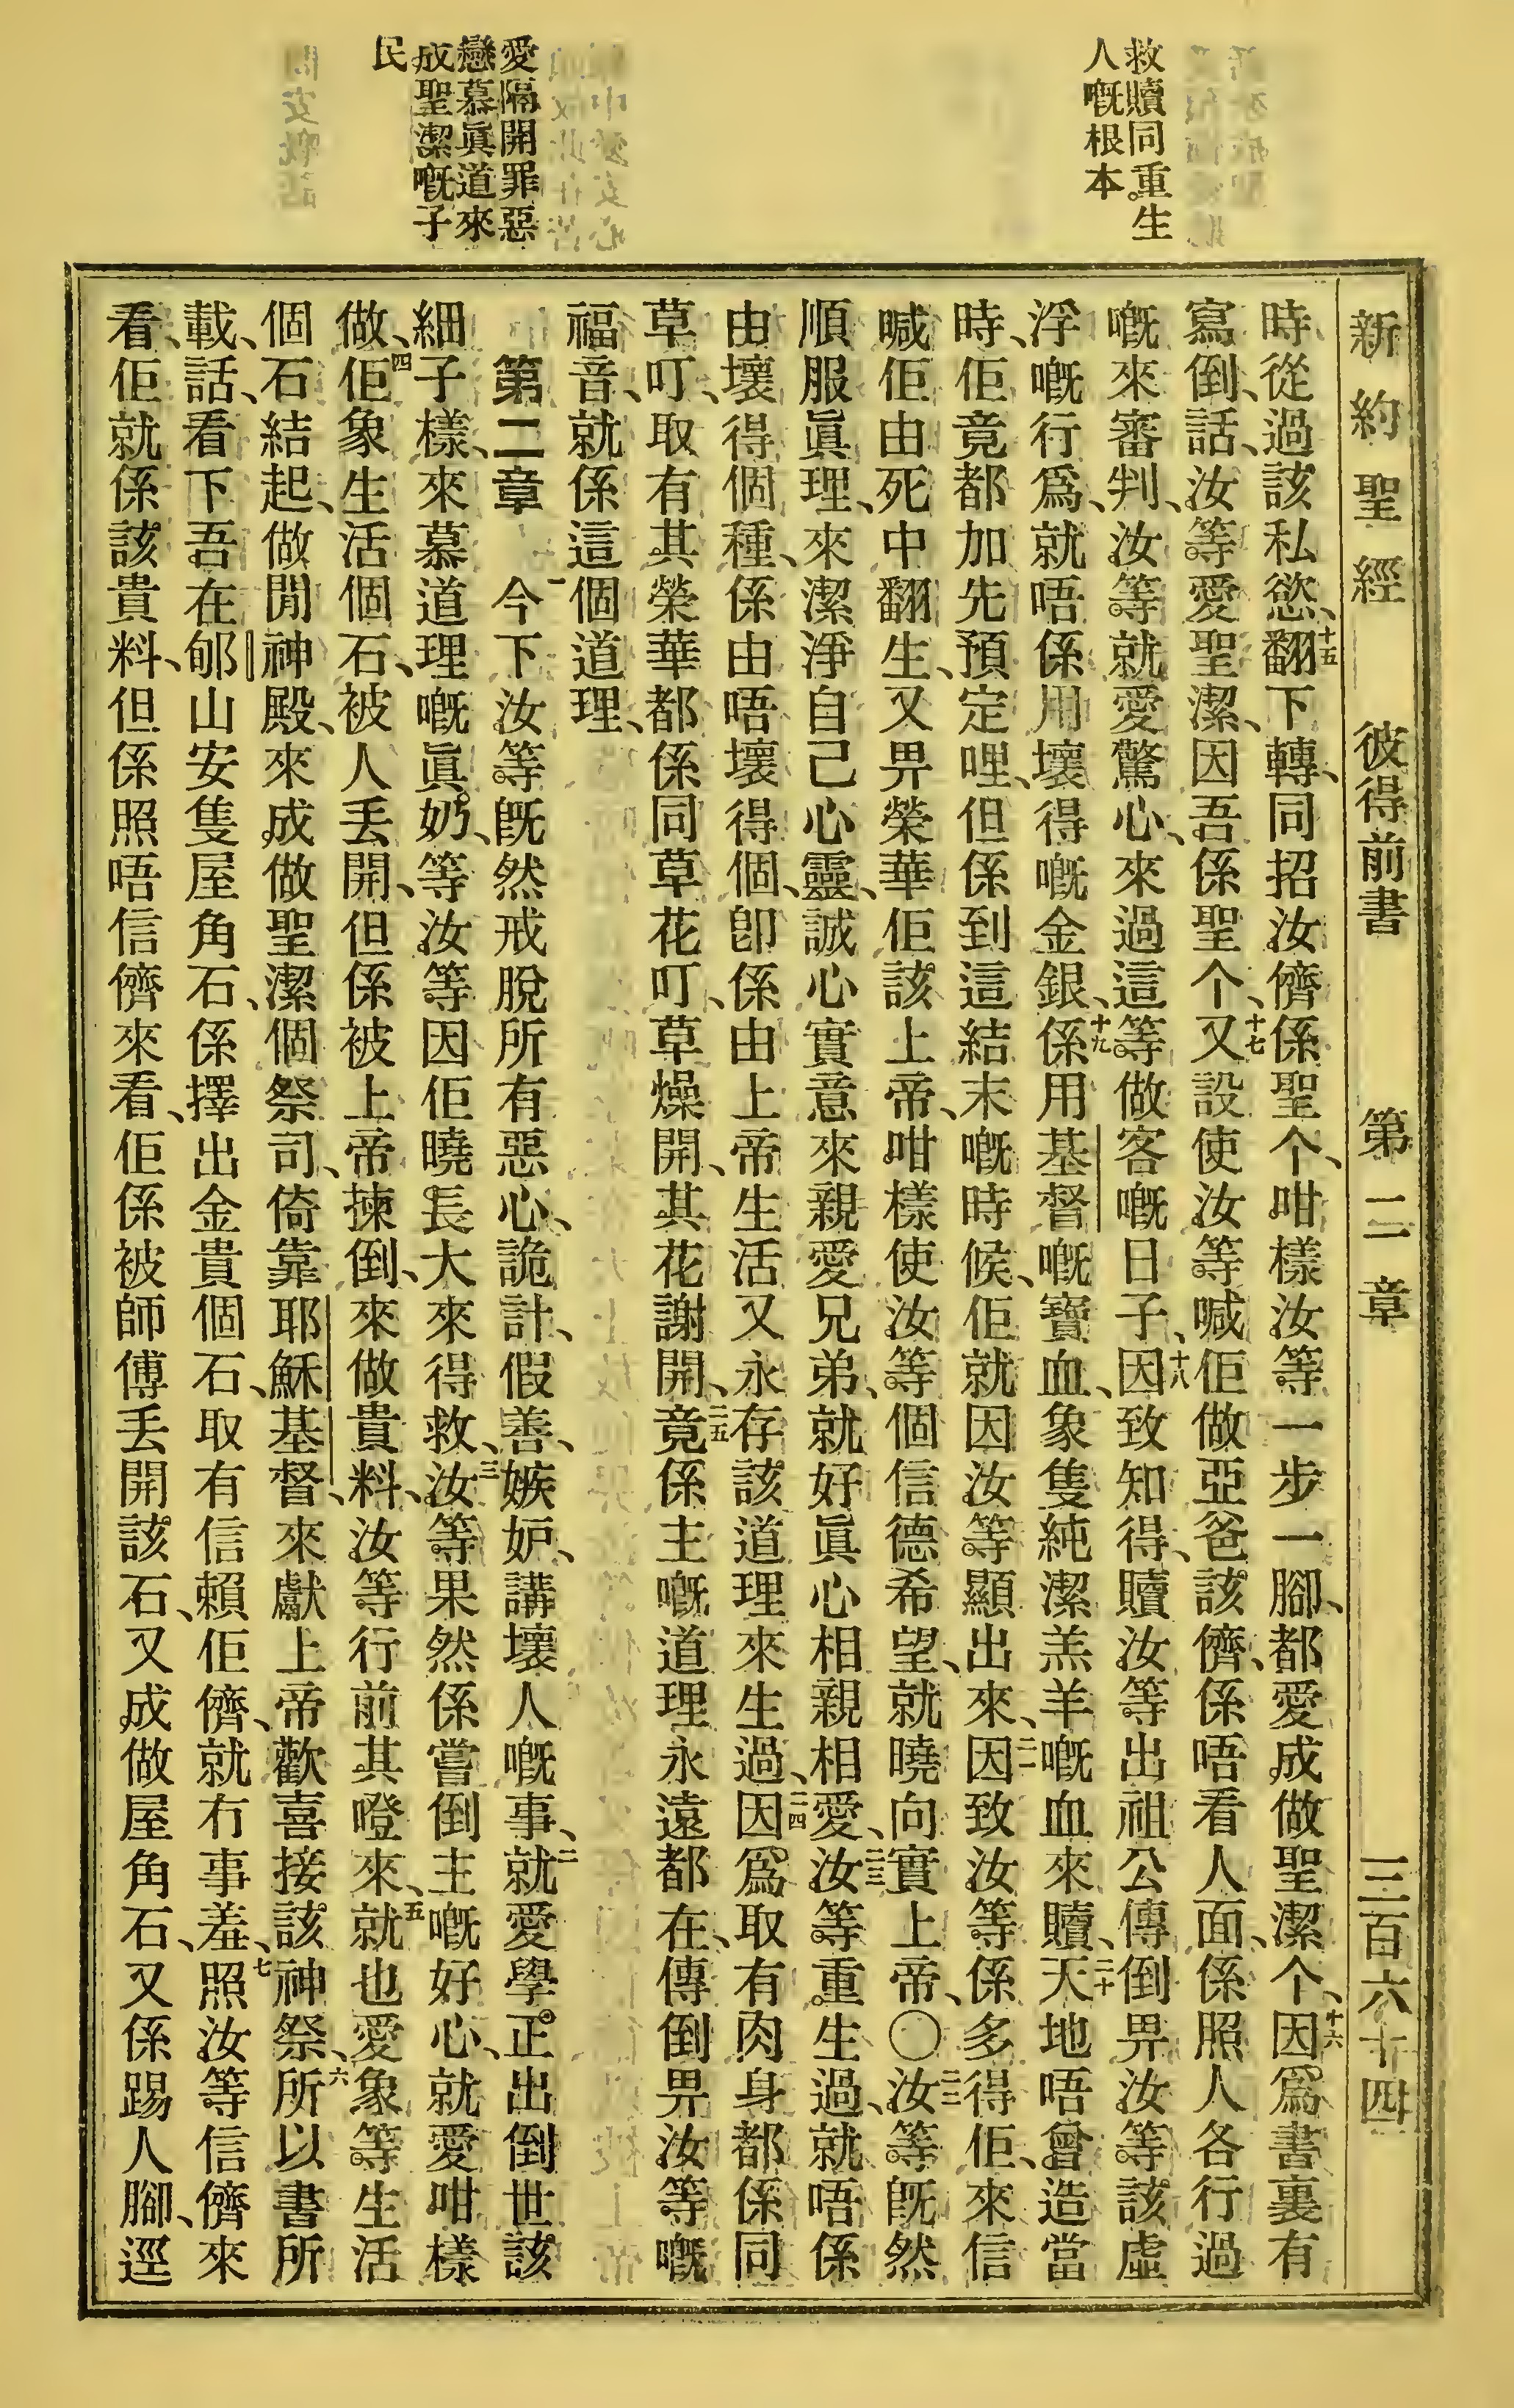 救贖同重生
人嘅根本
愛隔開罪惡
戀慕眞道來
成聖潔嘅子
民
新約聖經 彼得前書 第二章 三百六十四
時從過該私慾、十五翻下轉、同招汝儕係聖个、咁樣汝等一步一腳、都愛成做聖潔个、十六因爲書裏有
寫倒、話、汝等愛聖潔、因吾係聖个、十七又設使汝等喊佢做亞爸該儕、係唔看人面、係照人各行過
嘅來審判、汝等就愛驚心、來過這等做客嘅日子、十八因致知得、贖汝等出祖公傳倒畀汝等該虛
浮嘅行爲、就唔係用壞得嘅金銀、十九係用基督嘅寶血、象隻純潔羔羊嘅血來贖、二十天地唔曾造當
時、佢竟都加先預定哩、但係到這結末嘅時候、佢就因汝等顯出來、二一因致汝等係多得佢、來信
喊佢由死中翻生、又畀榮華佢該上帝、咁樣使汝等個信德希望、就曉向實上帝、〇二二汝等旣然
順服眞理、來潔淨自己心靈、誠心實意來親愛兄弟、就好眞心相親相愛、二三汝等重生過、就唔係
由壞得個種、係由唔壞得個、卽係由上帝生活又永存該道理來生過、二四因爲取有肉身都係同
草叮、取有其榮華都係同草花叮、草燥開、其花謝開、二五竟係主嘅道理永遠都在、傳倒畀汝等嘅
福音、就係這個道理、
第二章 一今下汝等旣然戒脫所有惡心、詭計、假善、嫉妒、講壞人嘅事、二就愛學正出倒世該
細子樣、來慕道理嘅眞奶、等汝等因佢曉長大來得救、三汝等果然係嘗倒主嘅好心、就愛咁樣
做、四佢象生活個石、被人丢開、但係被上帝揀倒、來做貴料、汝等行前其磴來、五就也愛象等生活
個石結起、做閒神殿、來成做聖潔個祭司、倚靠耶穌基督、來獻上帝歡喜接該神祭、六所以書所
載、話、看下吾在郇山安隻屋角石、係擇出金貴個石、取有信賴佢儕、就冇事羞、七照汝等信儕來
看、佢就係該貴料、但係照唔信儕來看、佢係被師傅丢開該石、又成做屋角石、又係踢人腳、逕